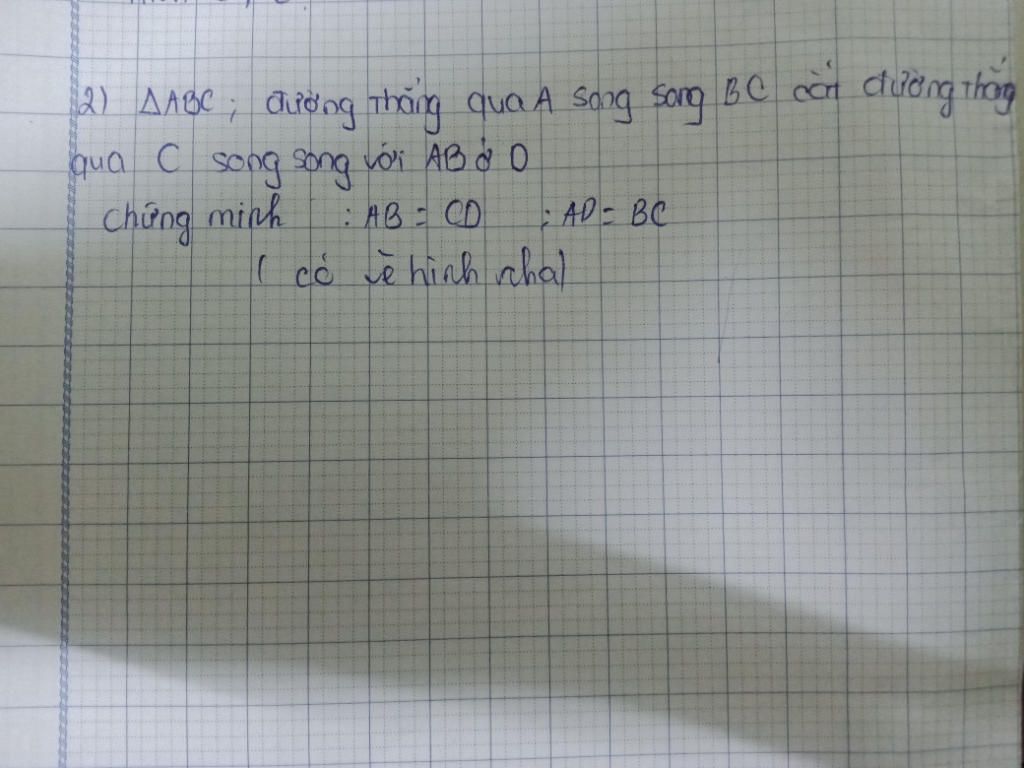 2) ΔABC ; đường thẳng qua A song song BC cắt đường thẳng
qua C song song với AB ở D
chứng minh : AB = CD ; AD = BC
( có vẽ hình nha)